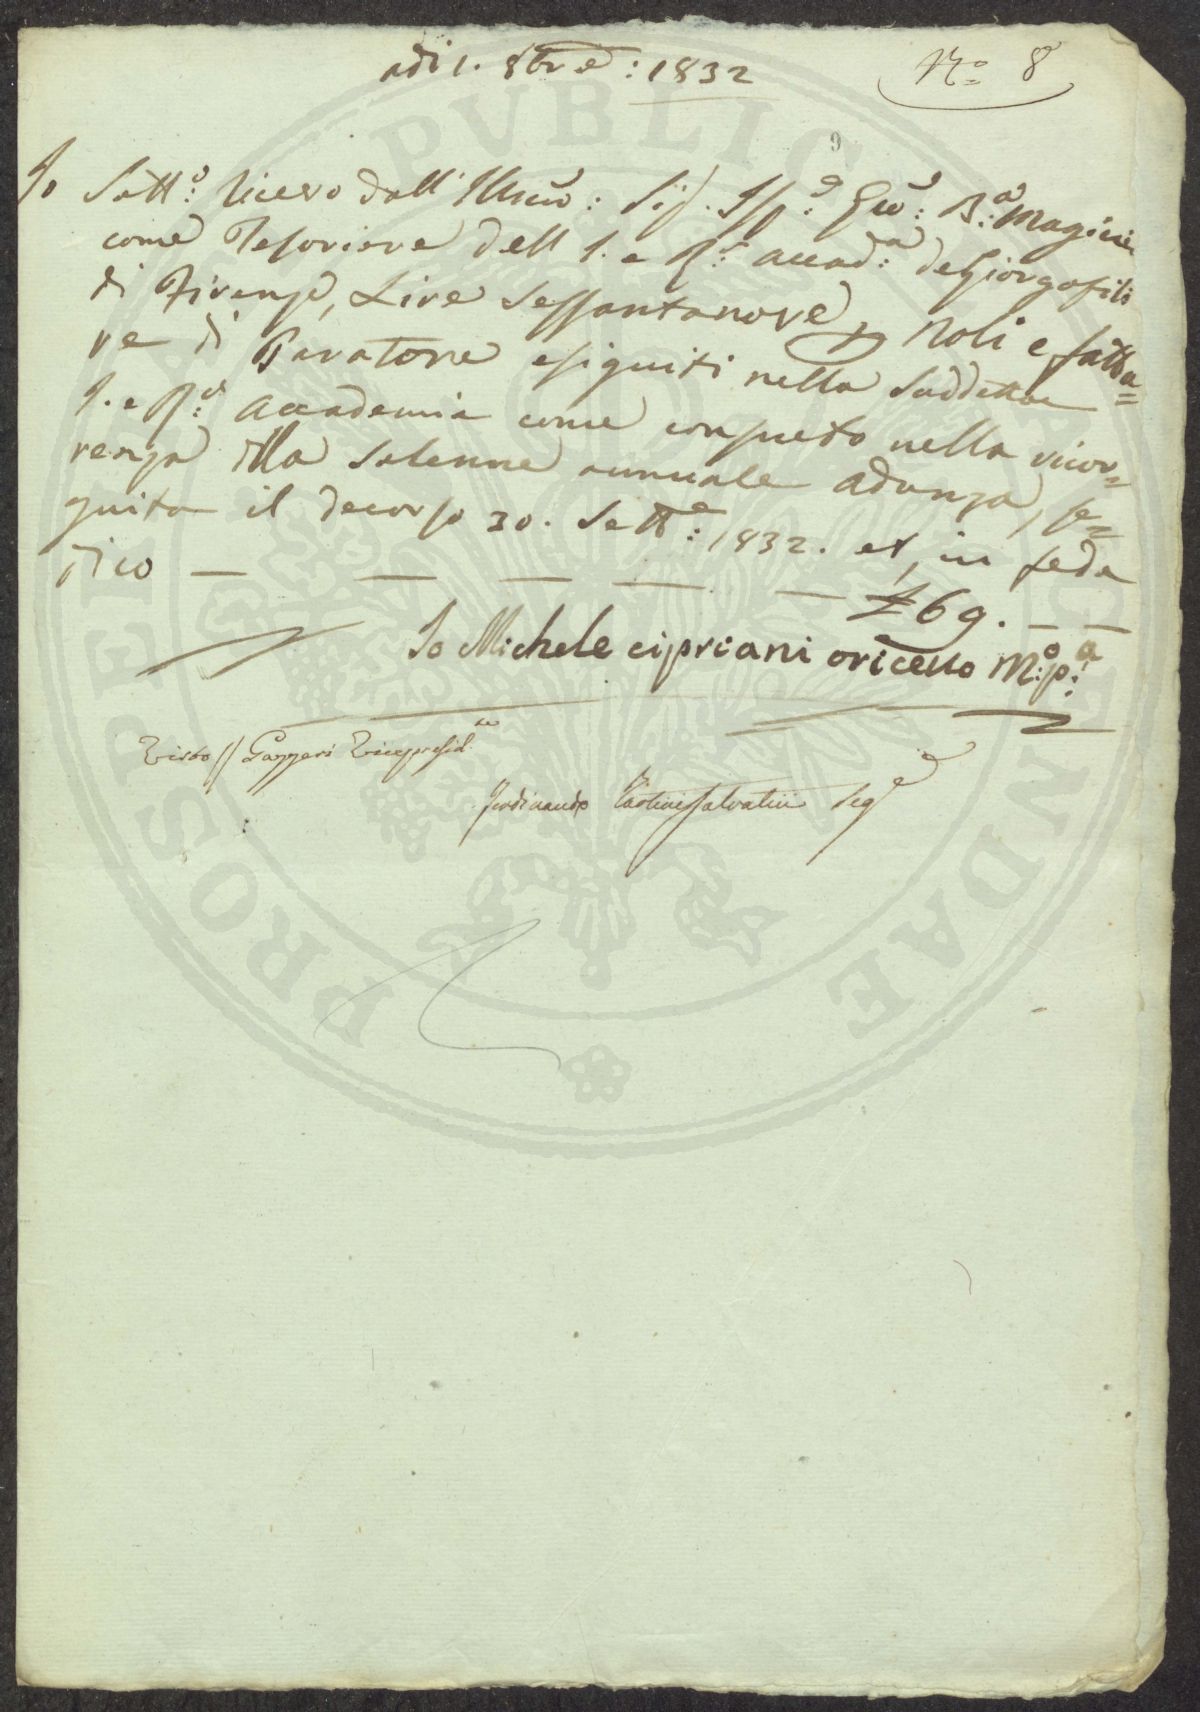 adi 1. 8bre: 1832
No: 8
9
Io Sott:o Ricevo dall' Illmo: Sig. Giu: B:a Magini
come Tesoriere dell I. e R:e accad:a deGiorgofili
di Firenze, Lire Sessantanove p Noli e fattu=
re di Paratore esiguiti nella Suddetta
I. e R:e Accademia come consueto nella ricor=
renza della Solenne annuale Adunza, se=
guita il decorso 30. Sett:e 1832. et, in fede
dico — — — — — £ 69. — —
Io Michele cipriani oricello M:o p:a
Visto // Gazzeri Vicepresidte
Ferdinando Tartini Salvatici Sege
PROSPERITATI PVBLICAE AVGENDAE